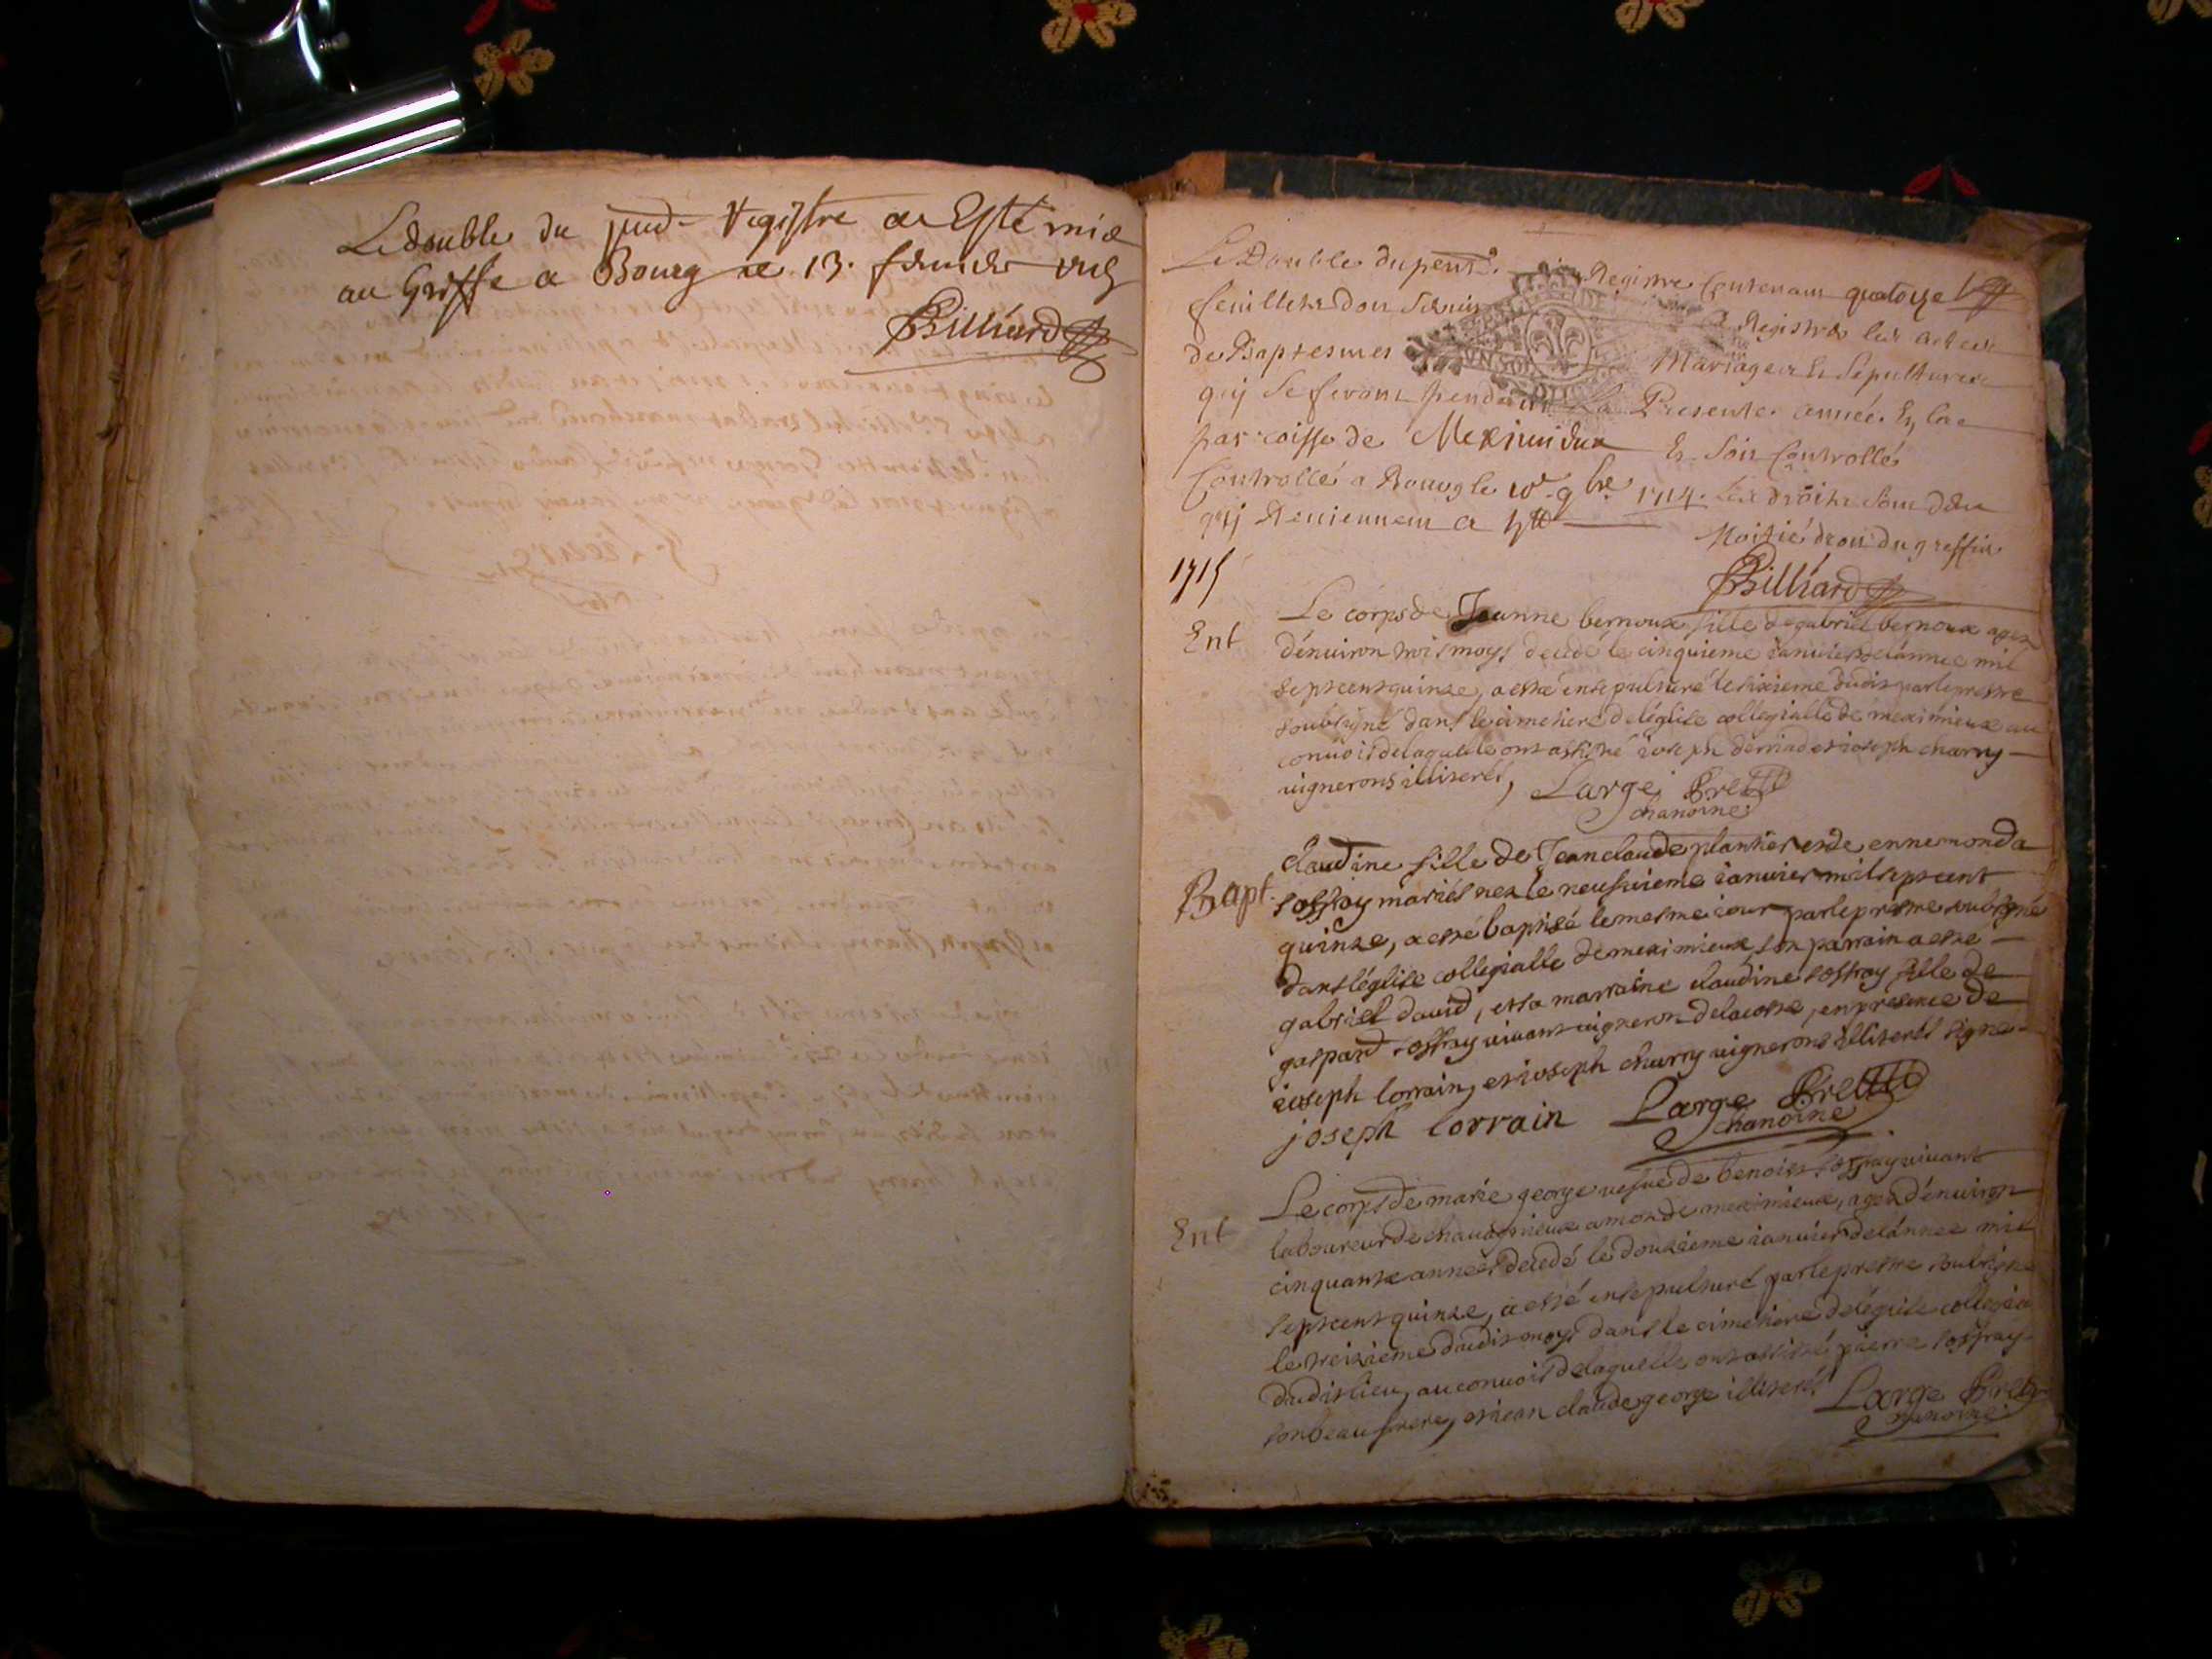 Le double du pnt Registre a Esté mis
au Greffe a Bourg le 13. feburier
Billiard
Le Double du pent Registre Contenant quatorze
feuillets dou seruir a Registrer les actes
de Baptesmes Mariages Et Sepultures
UN SOL
quj Se feront pendant La Presente année En la
parroisse de Meximieux Et Soit Controllé
Controllé a Bourg le 10e 9bre 1714. Les droits sont deu
quj Reuiennent a
Moitié droit du greffier
1715
Billiard
Ent
Le corps de Jeanne bernoux fille de gabriel bernoux agée
d'enuiron trois moys decedé le cinquieme ianuier de l'annee mil
sept cent quinze, a esté ensepulturé le sixieme dudit par le prestre
soubsigné dans le cimetiere de l'église collegialle de meximieux au
conuoit de laquelle ont assisté ioseph et ioseph charry
uignerons illiterés, Large Bre
chanoine
Bapt
claudine fille de Jean claude plantier et de ennemonda
soffray mariés nee le neufuieme ianuier mil sept cent
quinze, a esté baptisé le mesme iour par le prestre soubsigné
dans l'église collegialle de meximieux son parrain a esté
gabriel dauid, et sa marraine claudine soffray fille de
gaspard soffray uiuant uigneron de la coste, en presence de
ioseph lorrain, et ioseph charry uignerons illiterés signe
joseph lorrain Large Bre
chanoine
Ent
Le corps de marie george uefue de benoist soffray uiuant
laboureur de chauagnieux a mon de meximieux, agée d'enuiron
cinquante années decedé le douzieme ianuier de l'annee mil
sept cent quinze, a esté ensepulturé par le prestre soubsigné
le treizieme dudit moys dans le cimetiere de l'église collegialle
dudit lieu, au conuoit de laquelle ont assisté pierre soffray
son beau frere, et iean claude george illiterés Large Bre
chanoine